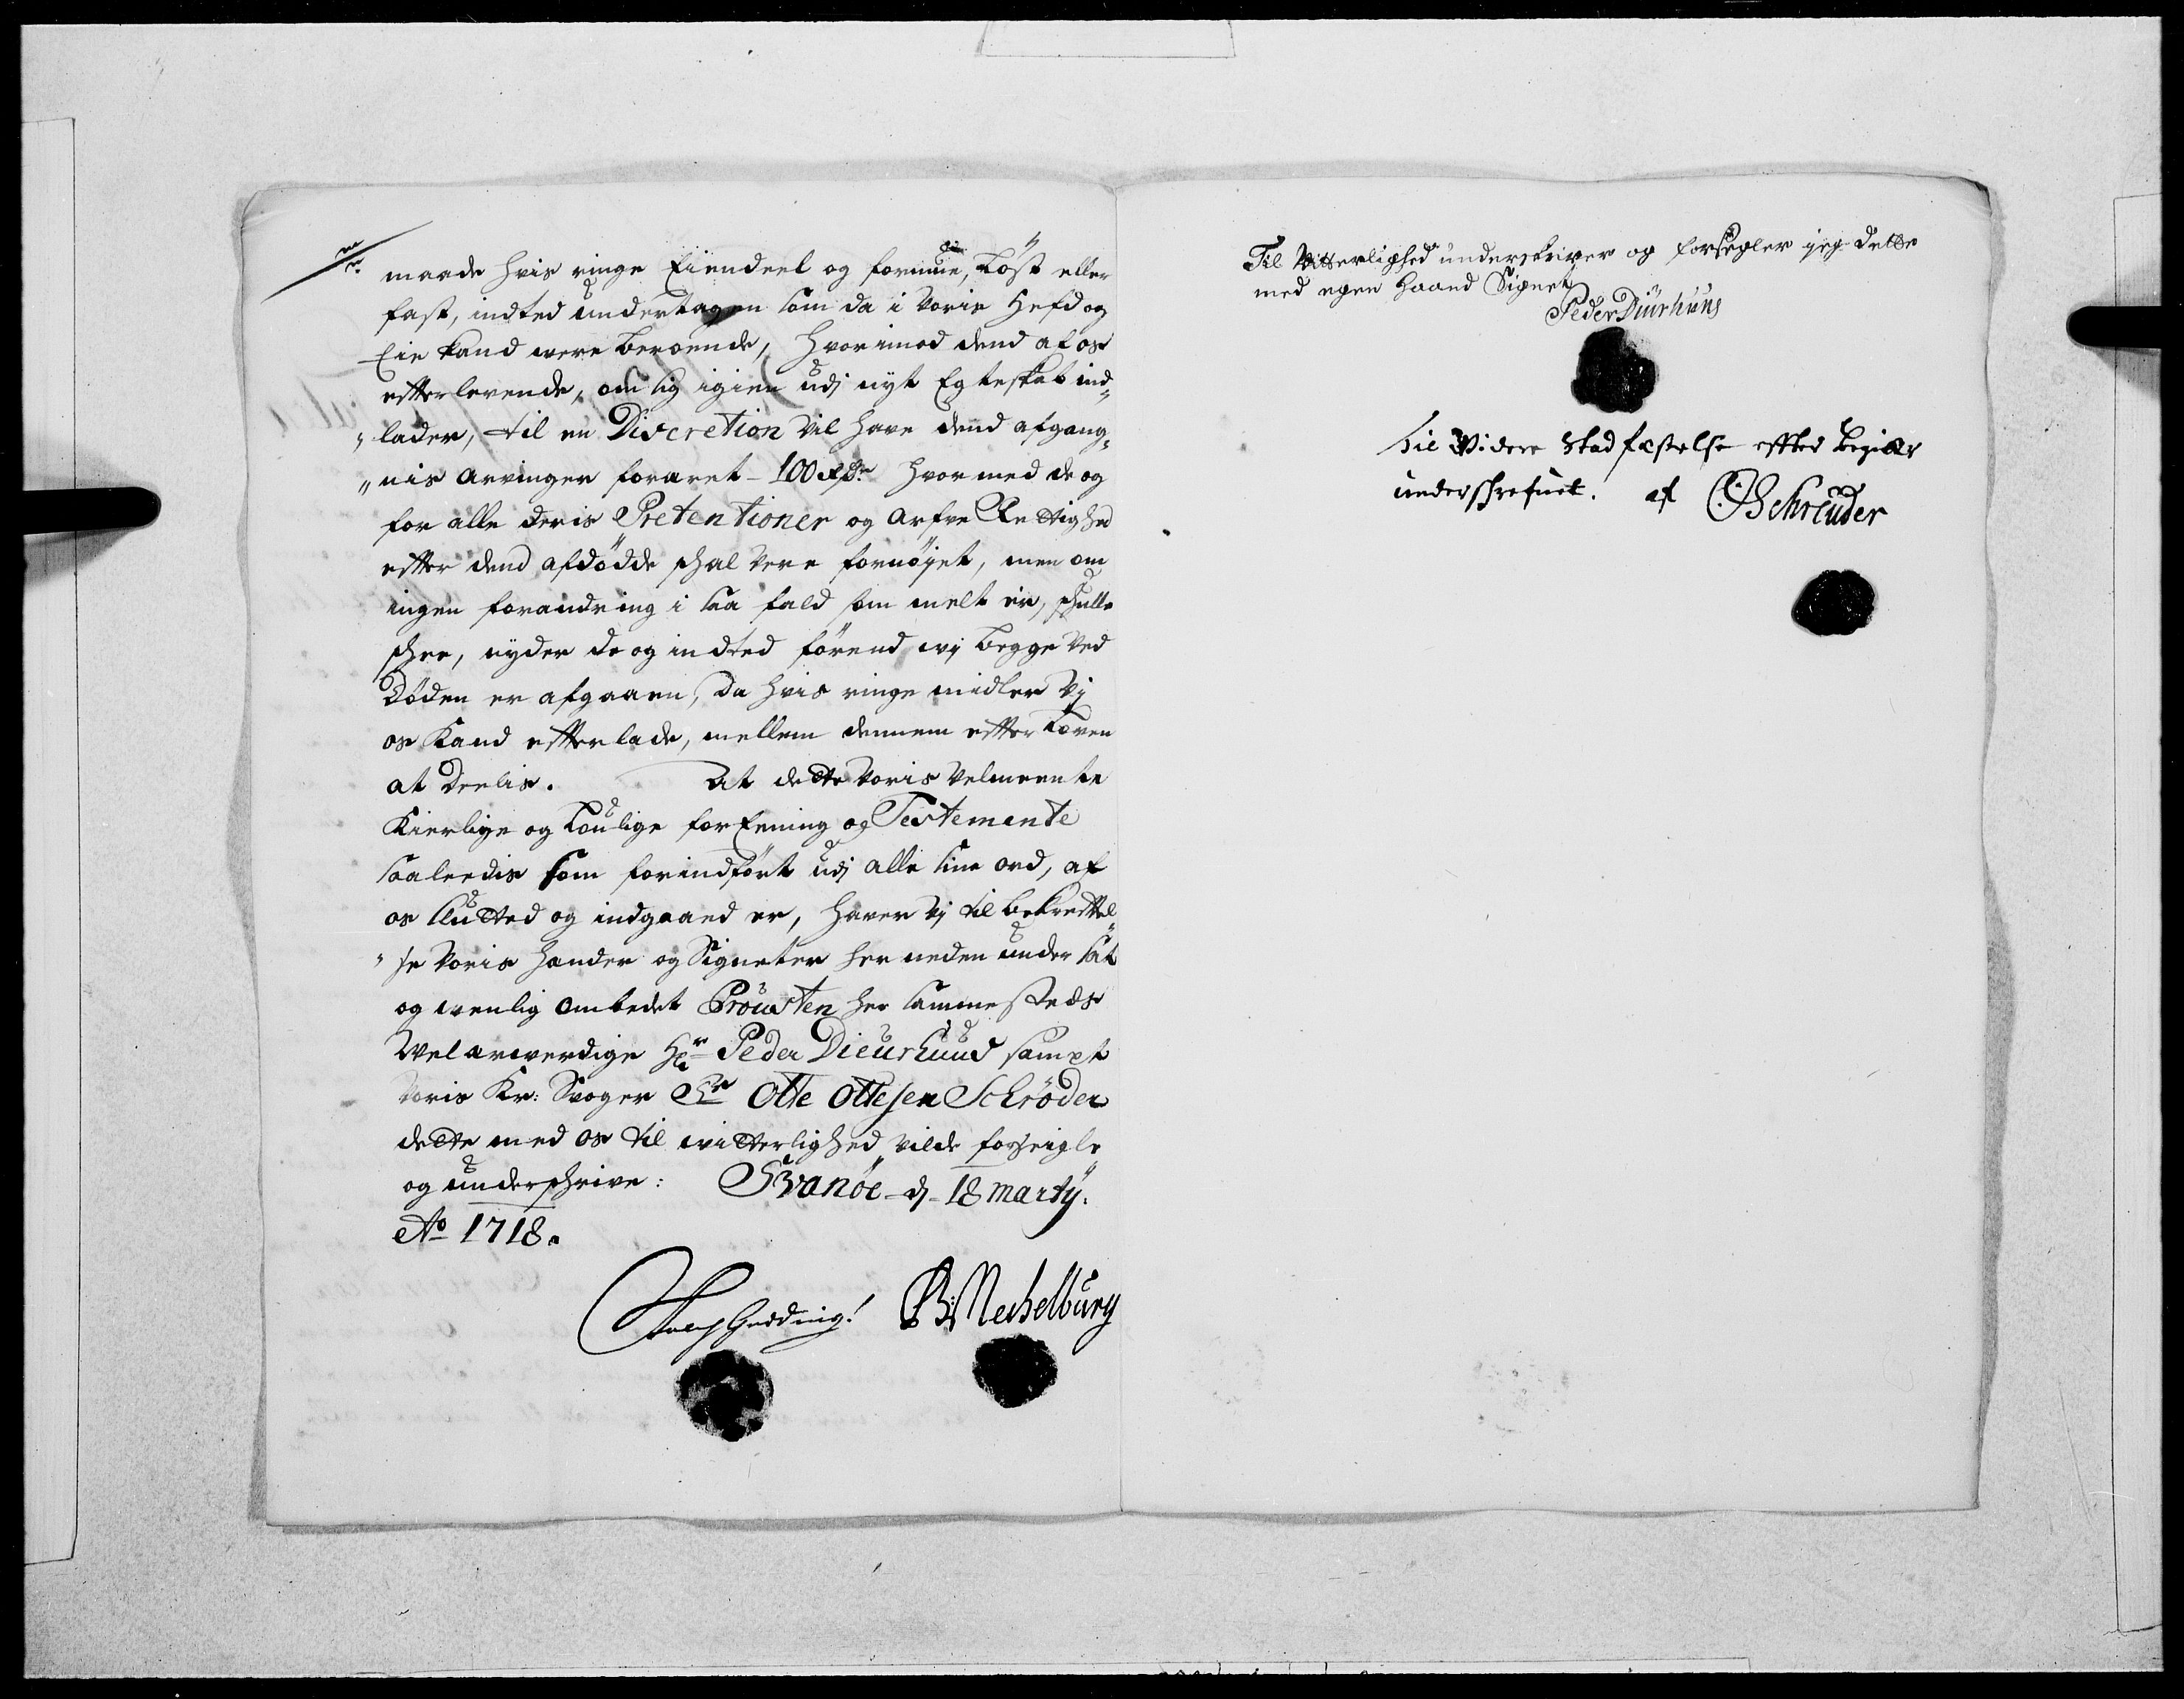 maade hvis ringe Eiendeel og formue, Löst eller
fast, indted undertagen som da i voris Hefd og
Eie kand were beroende, hvorimod dend af os
efterlevende, om sig igien udj nyt Egteskab ind„
„lader, til en Discretion vil have dend afgang„
„nis arvinger foræret - 100 Rdr hvormed de og
for alle deris Pretentioner og arfve Rettighed
efter dend afdödde schal vere fornöyet, men om
ingen forandring i saa fald som melt er, schulle
schee, nyder de og indted förend wj begge ved
Döden er afgaaen, da hvis ringe midler vj
os kand efterlade, mellem dennem efter Loven
at deelis. At dette voris velmeente
Kierlige og Loulige forEening og Testemente
saaleedis som forindfört udj alle sine ord, af
os slutted og indgaaed er, haver vj til bekreftel„
„se voris hender og Signeter her neden under sat
og wenlig ombedet Prousten her sammesteds
Welærwerdige Hr Peder Dieurhuus sampt
voris Kr: Svoger Sr Otte Ottesen Schröder
dette med os til witterlighed vilde forseigle
og underschrive: Svanöe d 18 marty.
Ao 1718.
B: Mechelburg
Til Vitterlighed underskriver og forsegler jeg dette
med egen Haand Signet
Peder Diurhuus
Til Videre Stadfæstelse efter begiær
underskrefuet. af O: Schreuder